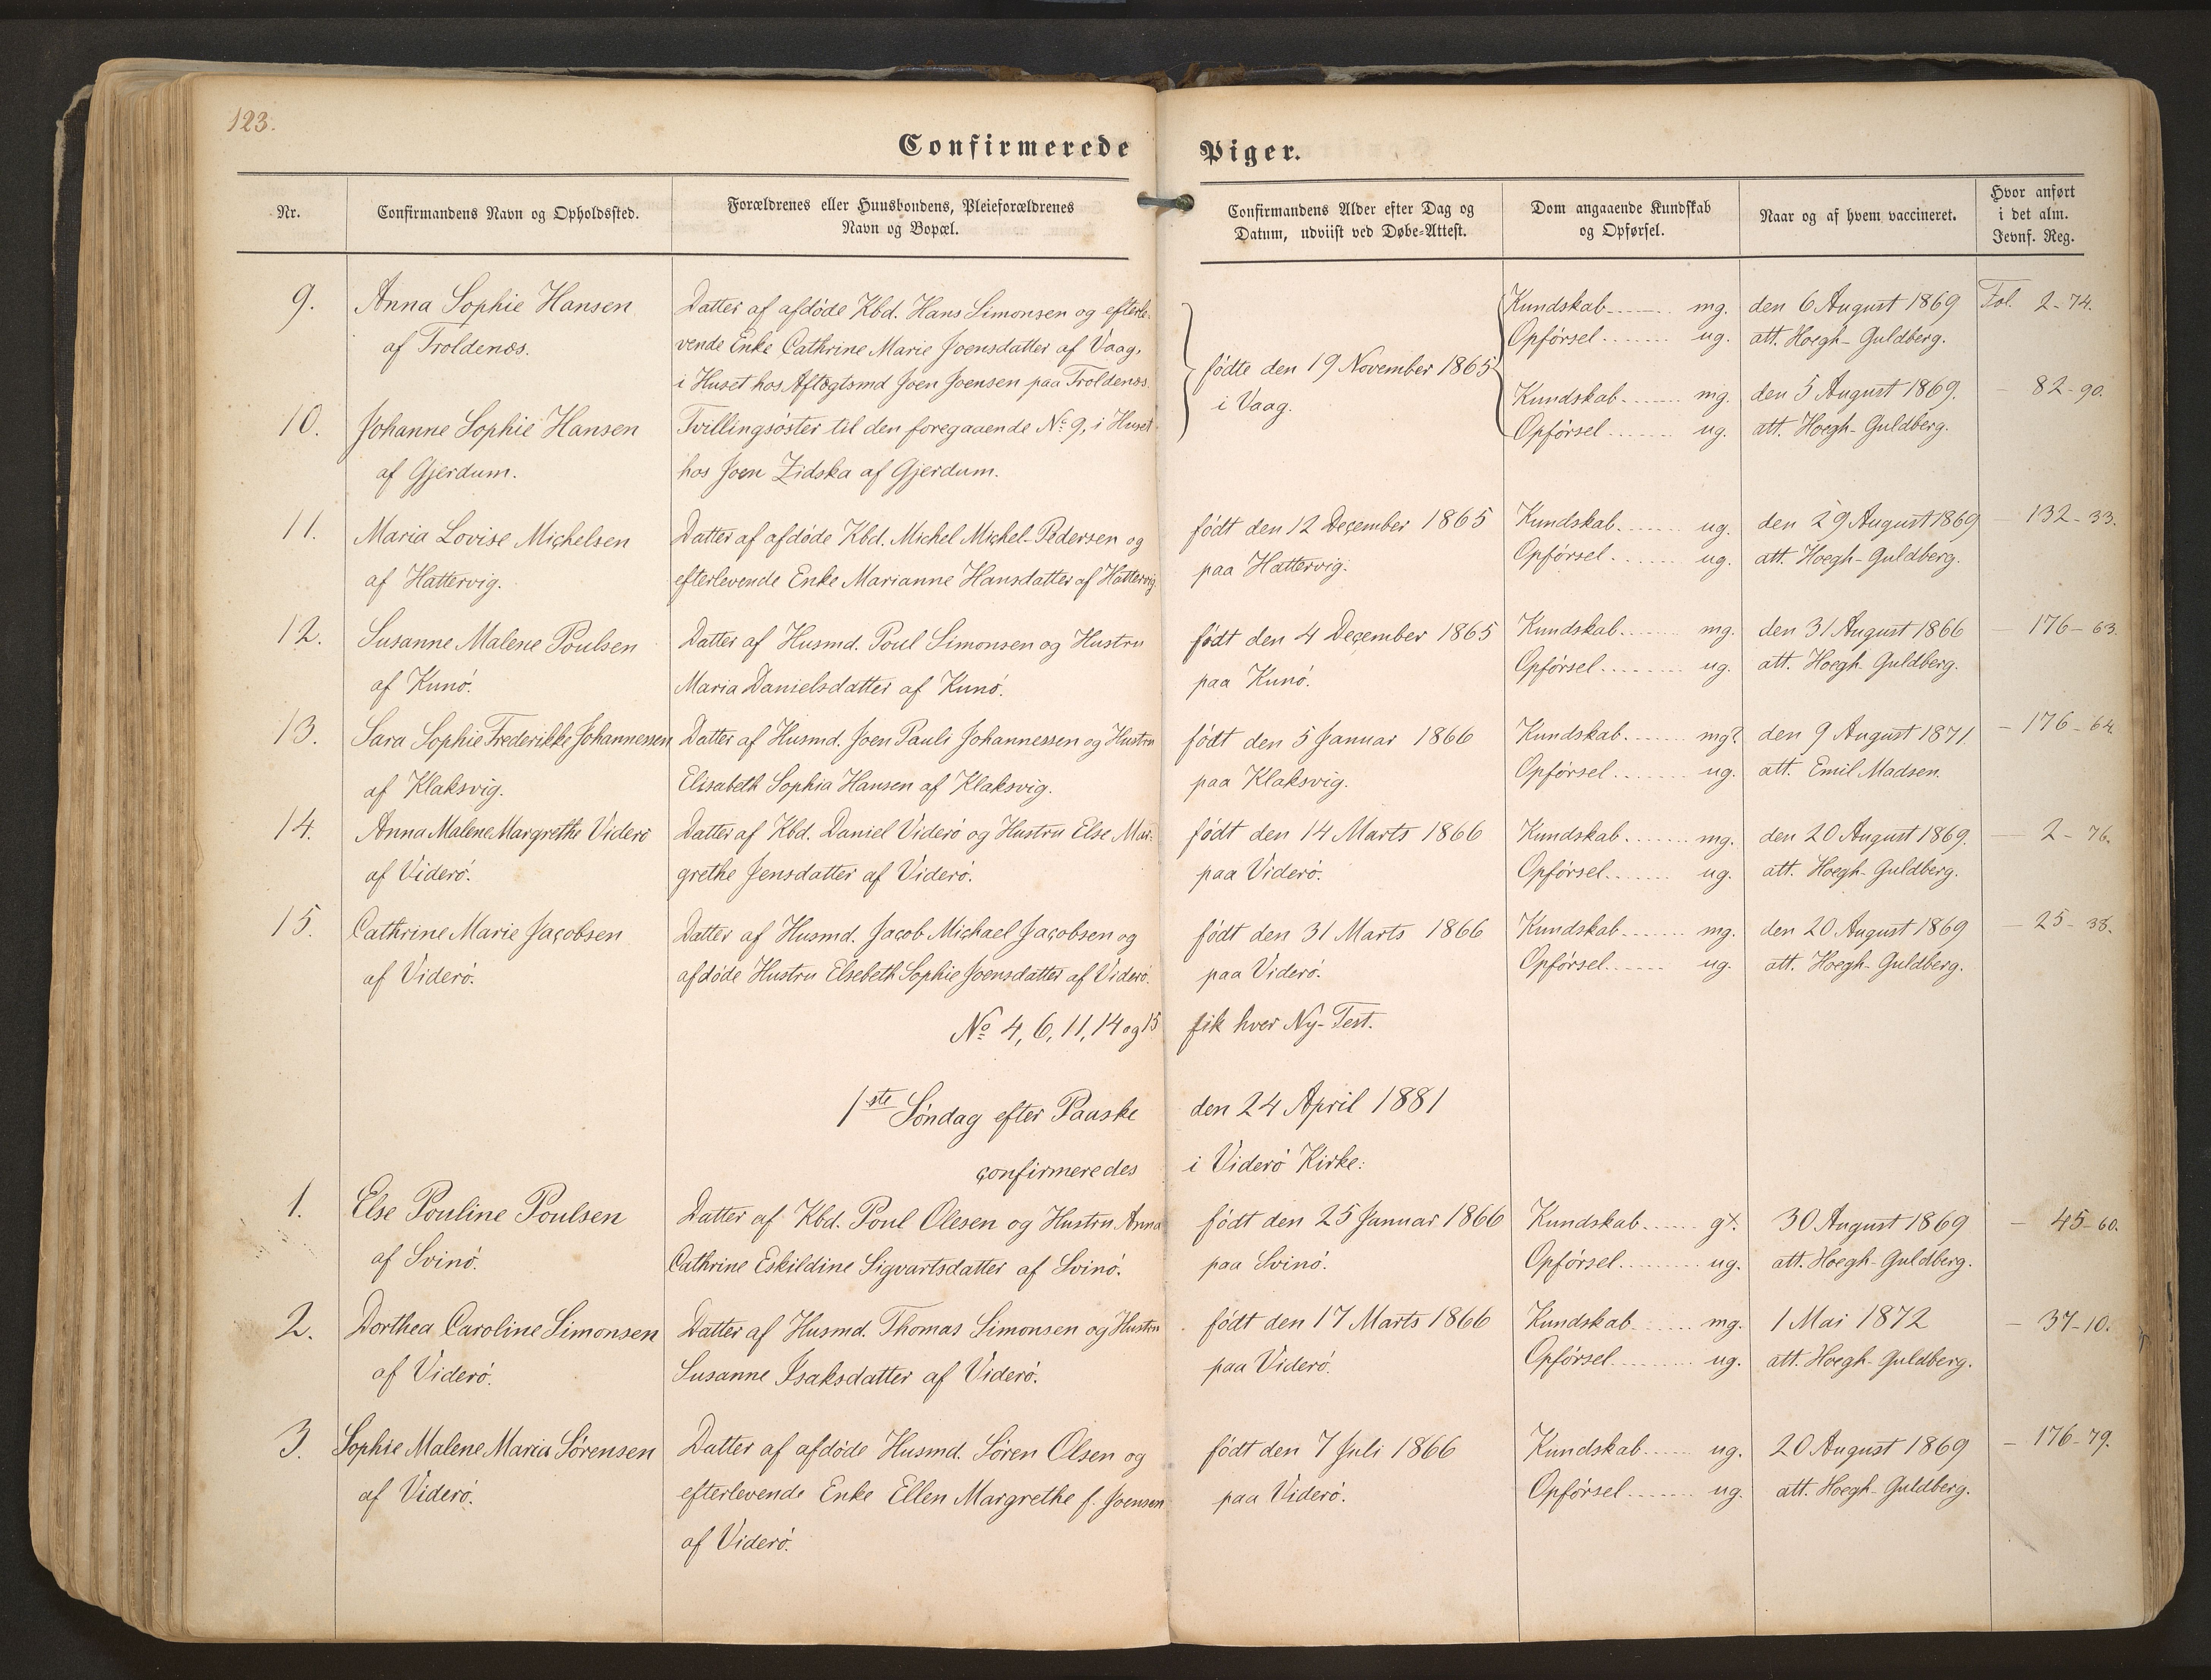 123.
Confirmerede Piger.
Nr.
Confirmandens Navn og Opholdssted.
Forældrenes eller Huusbondens, Pleieforældrenes
Navn og Bopæl.
Confirmandens Alder efter Dag og
Datum, udviist ved Døbe-Attest.
Dom angaaende Kundskab
og Opførsel.
Naar og af hvem vaccineret.
Hvor anført
i det alm.
Jevnf. Reg.
9.
Anna Sophie Hansen
af Troldenæs.
Datter af afdøde Kbd. Hans Simonsen og efterle-
vende Enke Cathrine Marie Joensdatter af Vaag,
i Huset hos Aftægtsmd Joen Joensen paa Troldenæs.
fødte den 19 November 1865
i Vaag.
Kundskab mg.
Opførsel ug.
den 6 August 1869
att. Hoegh-Guldberg.
Fol. 2-74.
10.
Johanne Sophie Hansen
af Gjerdum.
Tvillingsøster til den foregaaende No 9, i Huset
hos Joen Zidska af Gjerdum.
Kundskab mg.
Opførsel ug.
den 5 August 1869.
att. Hoegh-Guldberg.
- 82-90.
11.
Maria Lovise Michelsen
af Hattervig.
Datter af afdøde Kbd. Michel Michel-Pedersen og
efterlevende Enke Marianne Hansdatter af Hattervig
født den 12 December 1865
paa Hattervig.
Kundskab ug.
Opførsel ug.
den 29 August 1869
att. Hoegh-Guldberg.
- 132-33.
12.
Susanne Malene Poulsen
af Kunø.
Datter af Husmd. Poul Simonsen og Hustru
Maria Danielsdatter af Kunø.
født den 4 December 1865
paa Kunø.
Kundskab mg.
Opførsel ug.
den 31 August 1866
att. Hoegh-Guldberg.
- 176-63.
13.
Sara Sophie Frederikke Johannessen
af Klaksvig.
Datter af Husmd. Joen Pauli Johannessen og Hustru
Elisabeth Sophia Hansen af Klaksvig.
født den 5 Januar 1866
paa Klaksvig.
Kundskab mg?
Opførsel ug.
den 9 August 1871
att. Emil Madsen.
- 176-64.
14.
Anna Malene Margrethe Viderø
af Viderø.
Datter af Kbd. Daniel Viderø og Hustru Else Mar-
grethe Jensdatter af Viderø.
født den 14 Marts 1866
paa Viderø.
Kundskab mg.
Opførsel ug.
den 20 August 1869.
att. Hoegh-Guldberg.
- 2-76.
15.
Cathrine Marie Jacobsen
af Viderø.
Datter af Husmd. Jacob Michael Jacobsen og
afdøde Hustru Elsebeth Sophie Joensdatter af Viderø.
født den 31 Marts 1866
paa Viderø.
Kundskab mg.
Opførsel ug.
den 20 August 1869
att. Hoegh-Guldberg.
- 25-38.
No 4, 6, 11, 14 og 15 fik hver Ny-Test.
1ste Søndag efter Paaske den 24 April 1881
confirmeredes i Viderø Kirke:
1.
Else Pouline Poulsen
af Svinø.
Datter af Kbd. Poul Olesen og Hustru Anna
Cathrine Eskildine Sigvartsdatter af Svinø.
født den 25 Januar 1866
paa Svinø.
Kundskab g×.
Opførsel ug.
30 August 1869
att. Hoegh-Guldberg.
- 45-60.
2.
Dorthea Caroline Simonsen
af Viderø.
Datter af Husmd. Thomas Simonsen og Hustru
Susanne Isaksdatter af Viderø.
født den 17 Marts 1866
paa Viderø.
Kundskab mg.
Opførsel ug.
1 Mai 1872
att. Hoegh-Guldberg.
- 37-10.
3.
Sophie Malene Maria Sørensen
af Viderø.
Datter af afdøde Husmd. Søren Olsen og
efterlevende Enke Ellen Margrethe f. Joensen
af Viderø.
født den 7 Juli 1866
paa Viderø.
Kundskab ug.
Opførsel ug.
20 August 1869
att. Hoegh-Guldberg.
- 176-79.